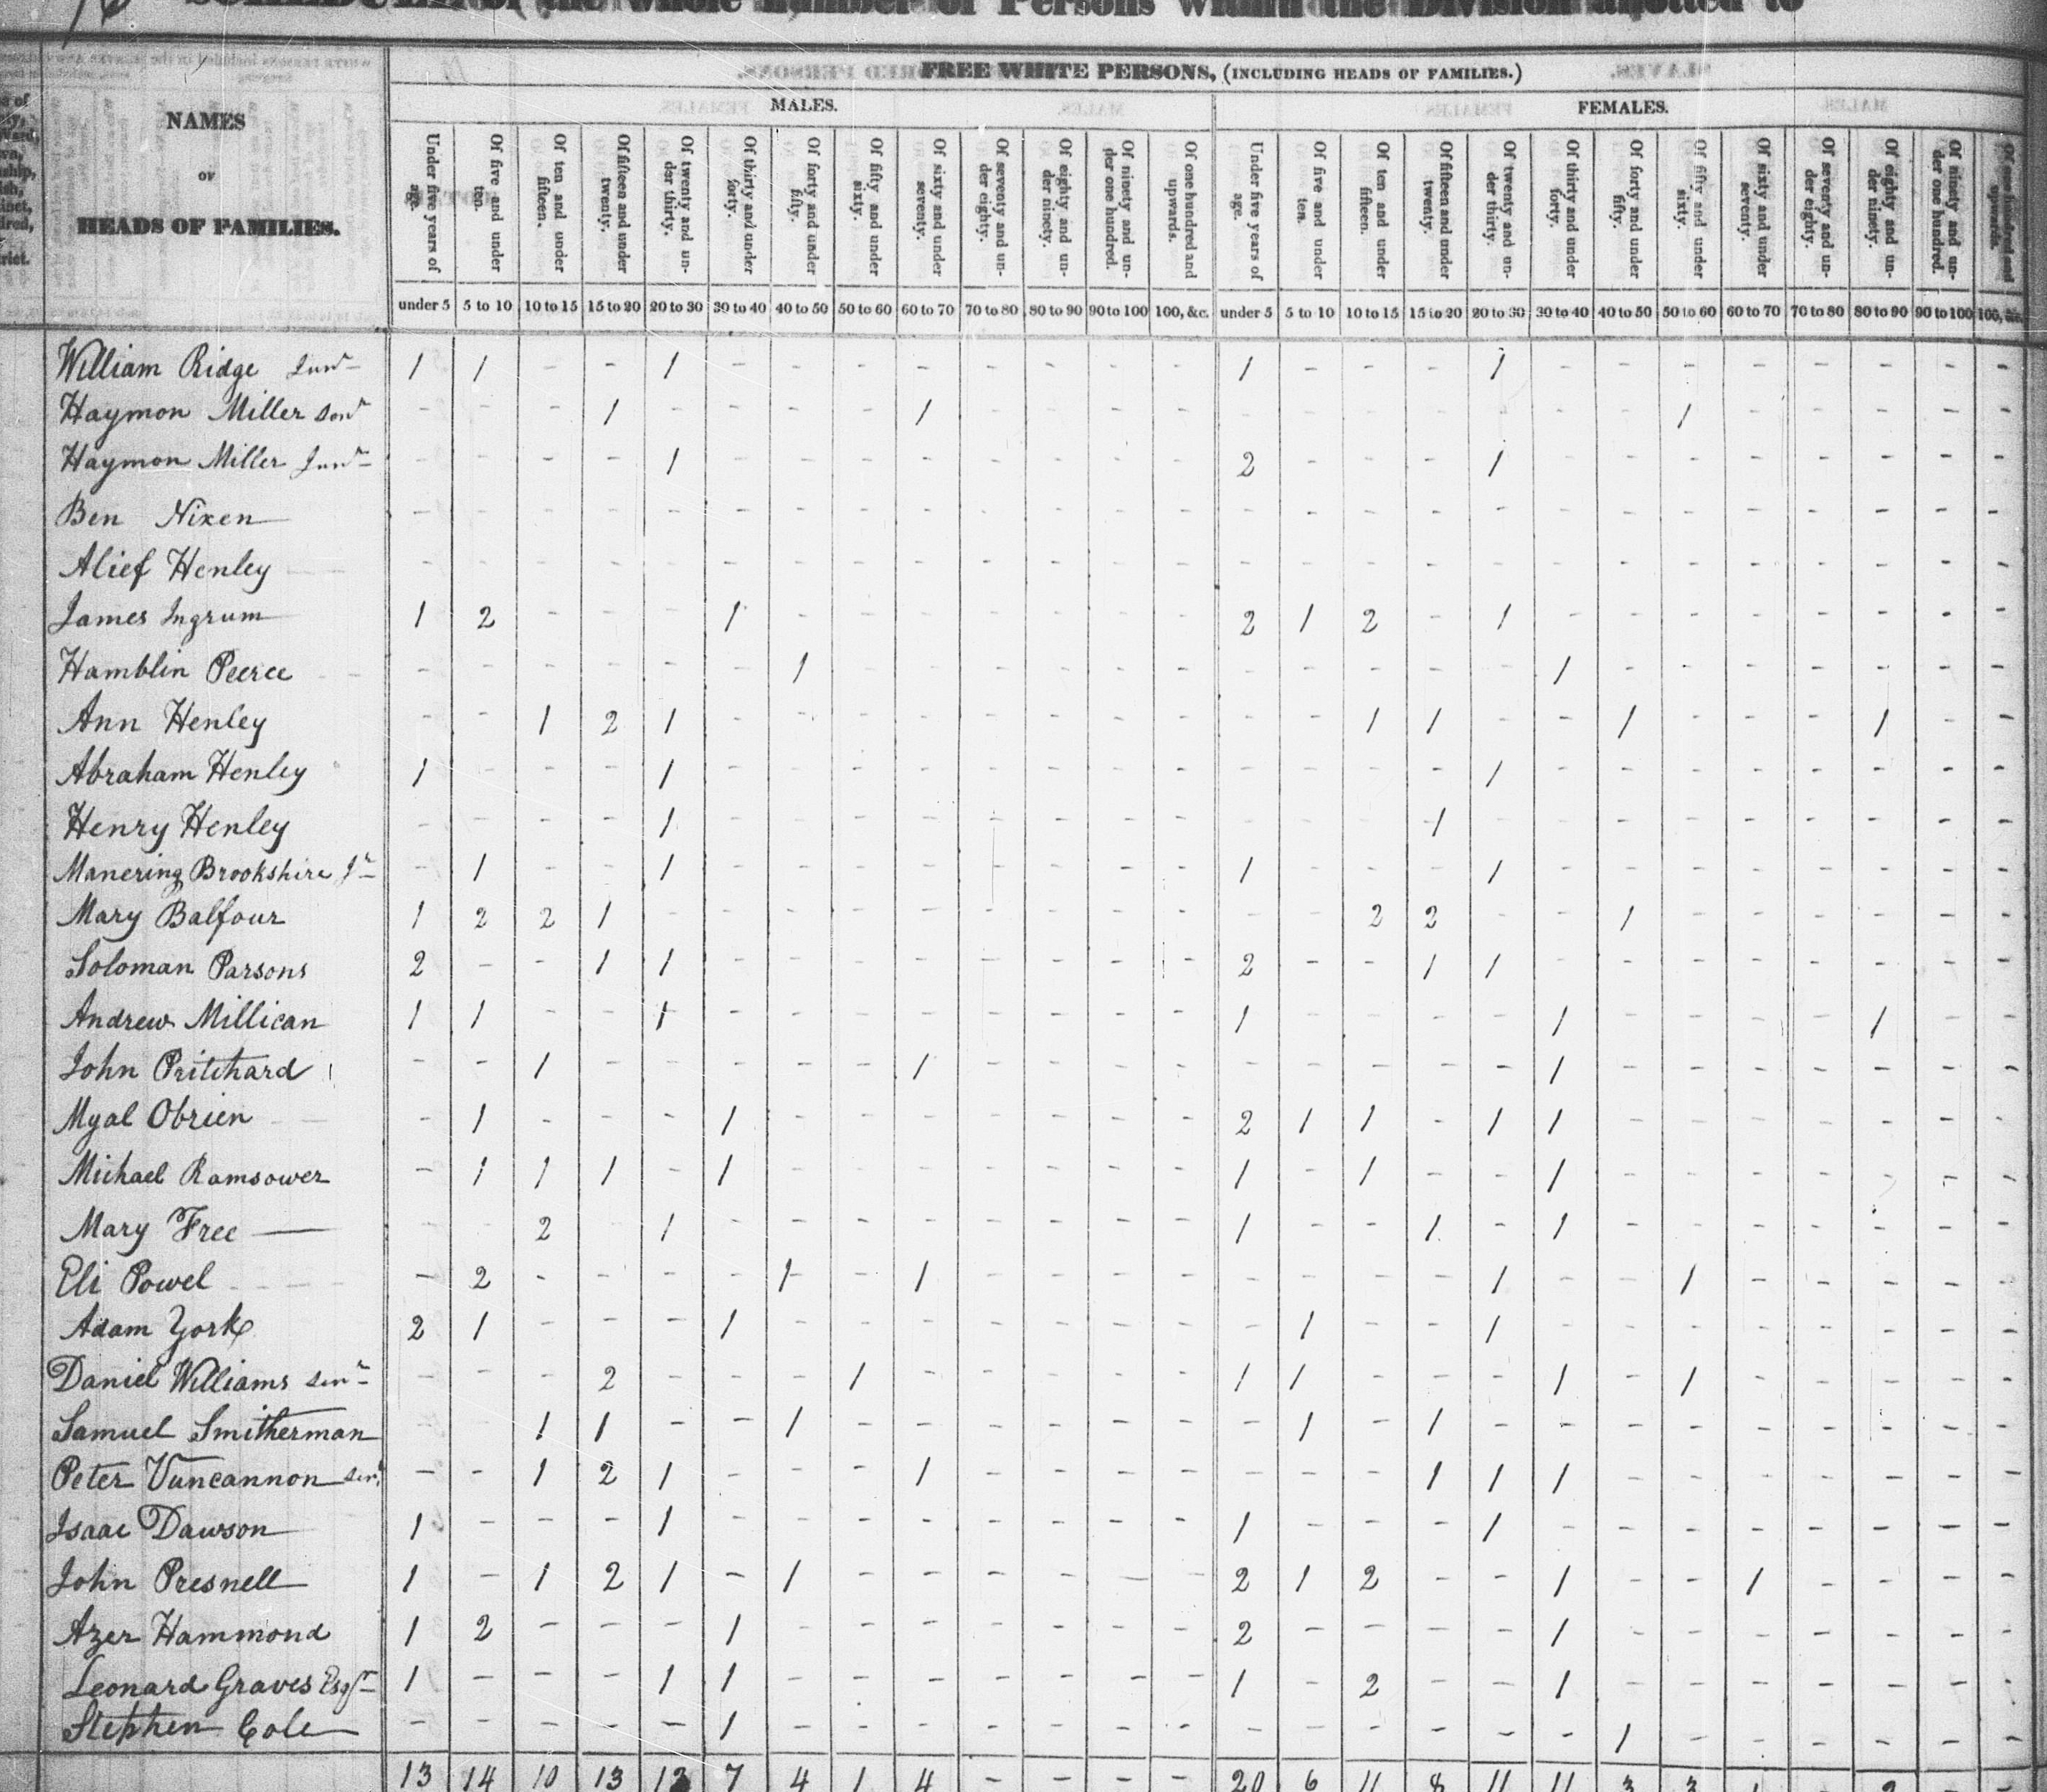 SCHEDULE of the whole number of Persons within the Division allotted to
FREE WHITE PERSONS, (INCLUDING HEADS OF FAMILIES.)
NAMES OF HEADS OF FAMILIES.
MALES. FEMALES.
Under five years of age. Of five and under ten. Of ten and under fifteen. Of fifteen and under twenty. Of twenty and under thirty. Of thirty and under forty. Of forty and under fifty. Of fifty and under sixty. Of sixty and under seventy. Of seventy and under eighty. Of eighty and under ninety. Of ninety and under one hundred. Of one hundred and upwards. Under five years of age. Of five and under ten. Of ten and under fifteen. Of fifteen and under twenty. Of twenty and under thirty. Of thirty and under forty. Of forty and under fifty. Of fifty and under sixty. Of sixty and under seventy. Of seventy and under eighty. Of eighty and under ninety. Of ninety and under one hundred. Of one hundred and upwards.
under 5 5 to 10 10 to 15 15 to 20 20 to 30 30 to 40 40 to 50 50 to 60 60 to 70 70 to 80 80 to 90 90 to 100 100, &c. under 5 5 to 10 10 to 15 15 to 20 20 to 30 30 to 40 40 to 50 50 to 60 60 to 70 70 to 80 80 to 90 90 to 100 100, &c.
William Ridge Junr 1 1 - - 1 - - - - - - - - 1 - - - 1 - - - - - - - -
Haymon Miller Senr - - - 1 - - - - 1 - - - - - - - - - - - 1 - - - - -
Haymon Miller Junr - - - - 1 - - - - - - - - 2 - - - 1 - - - - - - - -
Ben Nixen - - - - - - - - - - - - - - - - - - - - - - - - - -
Alief Henley - - - - - - - - - - - - - - - - - - - - - - - - - -
James Ingrum 1 2 - - - 1 - - - - - - - 2 1 2 - 1 - - - - - - - -
Hamblin Peerce - - - - - - 1 - - - - - - - - - - - 1 - - - - - - -
Ann Henley - - 1 2 1 - - - - - - - - - - 1 1 - - 1 - - - 1 - -
Abraham Henley 1 - - - 1 - - - - - - - - - - - - 1 - - - - - - - -
Henry Henley - - - - 1 - - - - - - - - - - - 1 - - - - - - - - -
Manering Brookshire Jr - 1 - - 1 - - - - - - - - 1 - - - 1 - - - - - - - -
Mary Balfour 1 2 2 1 - - - - - - - - - - - 2 2 - - 1 - - - - - -
Soloman Parsons 2 - - 1 1 - - - - - - - - 2 - - 1 1 - - - - - - - -
Andrew Millican 1 1 - - 1 - - - - - - - - 1 - - - - 1 - - - - 1 - -
John Pritchard - - 1 - - - - - 1 - - - - - - - - - 1 - - - - - - -
Myal Obrien - 1 - - - 1 - - - - - - - 2 1 1 - 1 1 - - - - - - -
Michael Ramsower - 1 1 1 - 1 - - - - - - - 1 - 1 - - 1 - - - - - - -
Mary Free - - 2 - 1 - - - - - - - - 1 - - 1 - 1 - - - - - - -
Eli Powel - 2 - - - - 1 - 1 - - - - - - - - 1 - - 1 - - - - -
Adam York 2 1 - - - 1 - - - - - - - - 1 - - 1 - - - - - - - -
Daniel Williams Senr - - - 2 - - - 1 - - - - - 1 1 - - - 1 - 1 - - - - -
Samuel Smitherman - - 1 1 - - 1 - - - - - - - 1 - 1 - - - - - - - - -
Peter Vuncannon Senr - - 1 2 1 - - - 1 - - - - - - - 1 1 1 - - - - - - -
Isaac Dawson 1 - - - 1 - - - - - - - - 1 - - - 1 - - - - - - - -
John Presnell 1 - 1 2 1 - 1 - - - - - - 2 1 2 - - 1 - - 1 - - - -
Azer Hammond 1 2 - - - 1 - - - - - - - 2 - - - - 1 - - - - - - -
Leonard Graves Esqr 1 - - - 1 1 - - - - - - - 1 - 2 - - 1 - - - - - - -
Stephen Cole - - - - - 1 - - - - - - - - - - - - - 1 - - - - - -
13 14 10 13 13 7 4 1 4 - - - - 20 6 11 8 11 11 3 3 1 - 2 - -